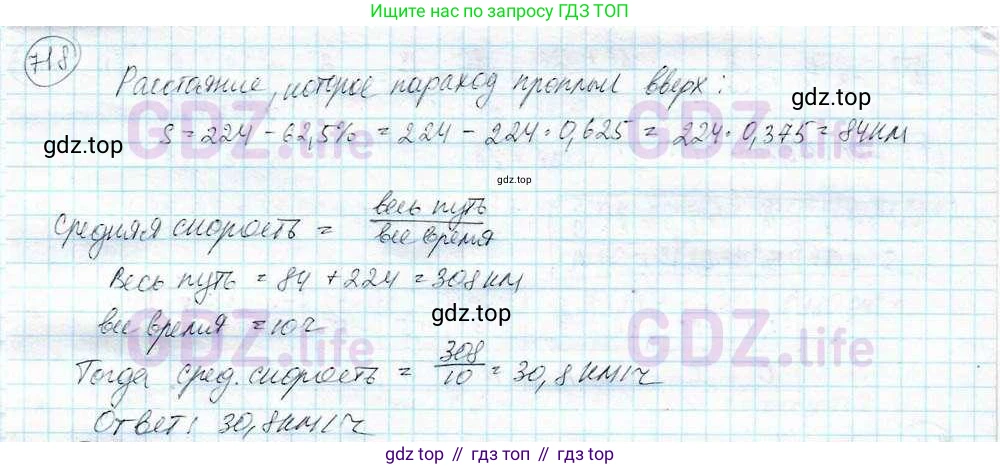 Ищите нас по запросу ГДЗ ТОП
718
Расстояние, которое параход проплыл вверх:
gdz.top
S = 224 - 62,5% = 224 - 224 · 0,625 = 224 · 0,375 = 84 км
gdz.top
gdz.top
Средняя скорость = весь путь
все время
Весь путь = 84 + 224 = 308 км
GDZ.life
GDZ.life
все время = 10 ч
gdz.top
GDZ.life
GDZ.life
Тогда сред. скорость = 308/10 = 30,8 км/ч
Ответ: 30,8 км/ч
gdz.top // гдз топ // gdz.top